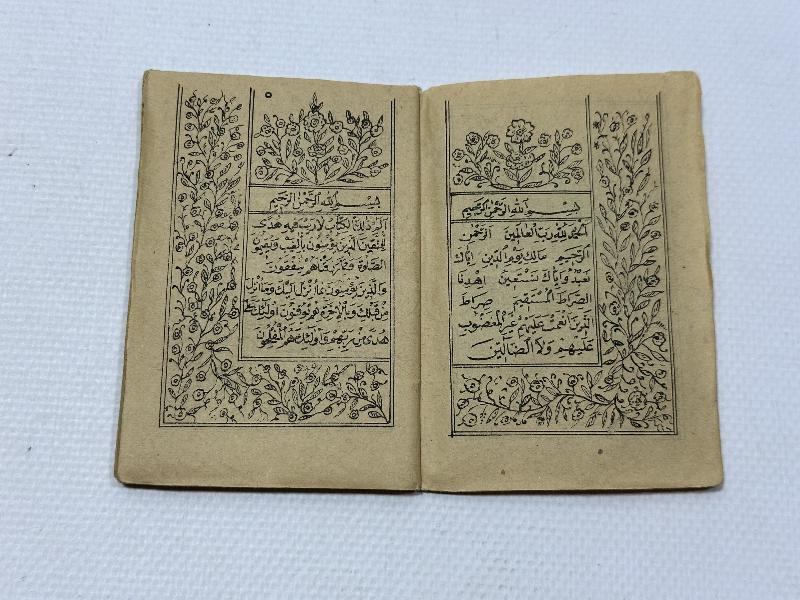 بسم الله الرحمن الرحيم
الحمد لله رب العالمين الرحمن
الرحيم مالك يوم الدين اياك
نعبد واياك نستعين اهدنا
الصراط المستقيم صراط
الذين انعمت عليهم غير المغضوب
عليهم ولا الضالين
٥
بسم الله الرحمن الرحيم
الم ذلك الكتاب لا ريب فيه هدى
للمتقين الذين يؤمنون بالغيب ويقيمون
الصلوة ومما رزقناهم ينفقون
والذين يؤمنون بما انزل اليك وما انزل
من قبلك وبالاخرة هم يوقنون اولئك على
هدى من ربهم واولئك هم المفلحون